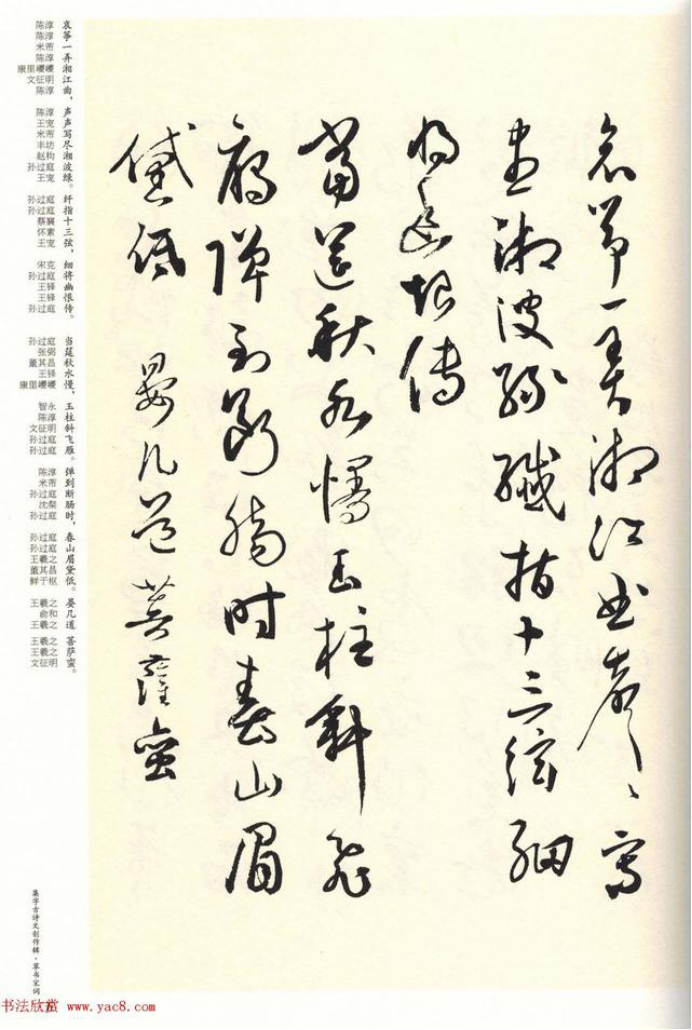 哀箏一弄湘江曲聲聲寫
盡湘波綠纖指十三絃細
將幽恨傳
當筵秋水慢玉柱斜飛
雁彈到斷腸時春山眉
黛低 晏几道 菩薩蠻
哀筝一弄湘江曲,声声写尽湘波绿。纤指十三弦,细将幽恨传。当筵秋水慢,玉柱斜飞雁。弹到断肠时,春山眉黛低。晏几道 菩萨蛮。
陈淳
陈淳
米芾
陈淳
康里巎巎
文征明
陈淳
陈淳
王宠
米芾
丰坊
赵构
孙过庭
王宠
孙过庭
孙过庭
蔡襄
怀素
王宠
宋克
孙过庭
王铎
王铎
孙过庭
孙过庭
张弼
董其昌
王铎
康里巎巎
智永
陈淳
文征明
孙过庭
孙过庭
陈淳
米芾
孙过庭
沈粲
孙过庭
孙过庭
孙过庭
王羲之
董其昌
鲜于枢
王羲之
俞和
王羲之
王羲之
王羲之
文征明
集字古诗文创作辑·草书宋词
书法欣赏 www.yac8.com